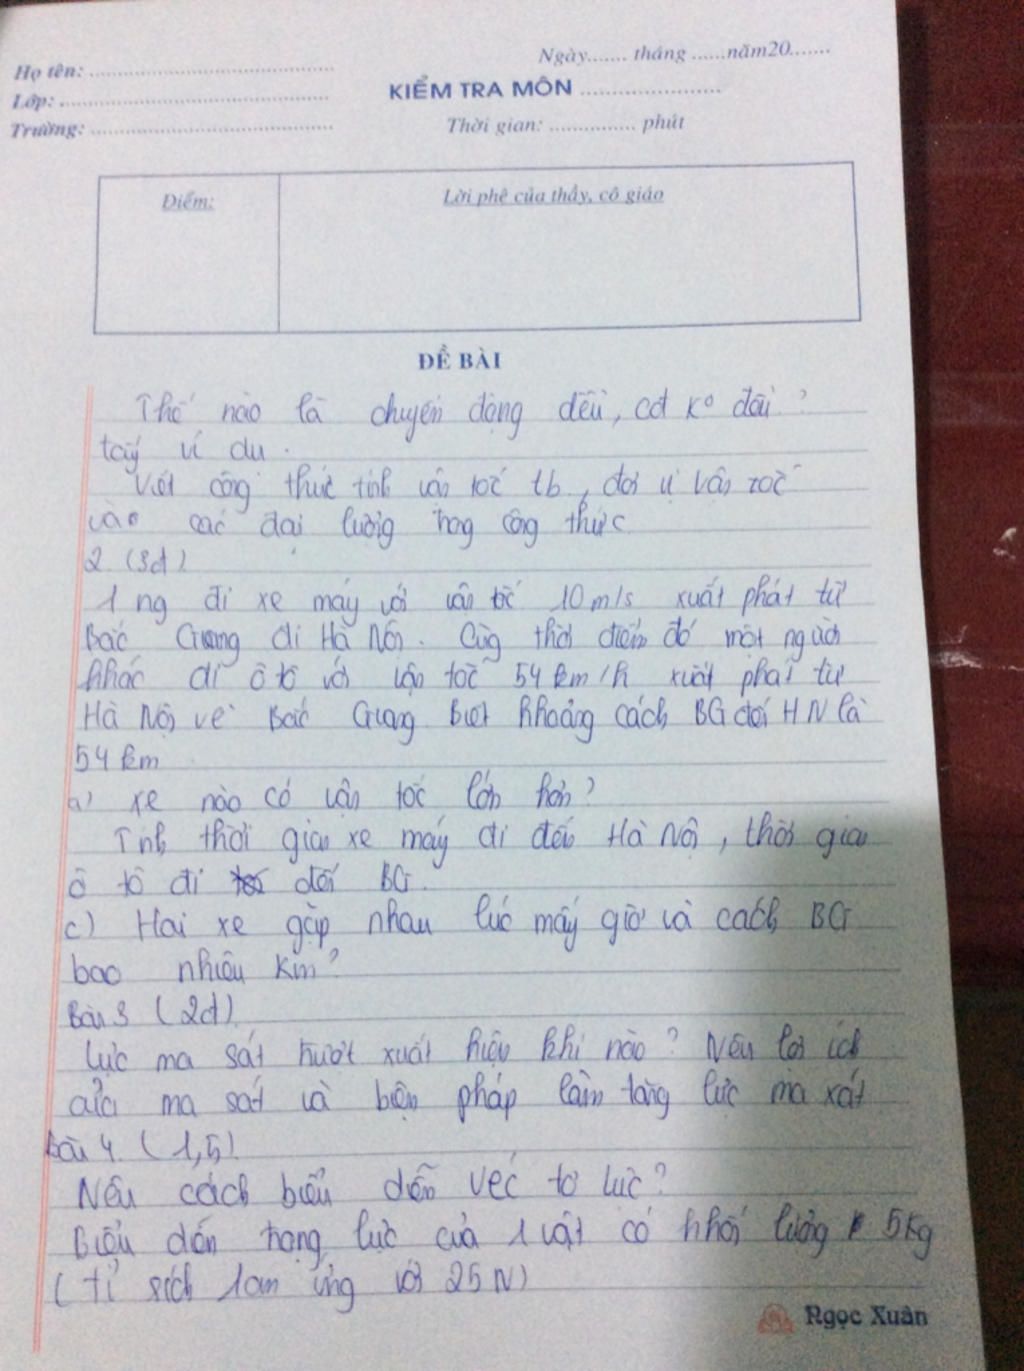 Ngày....... tháng ......năm20.......
Họ tên: ........................................
KIỂM TRA MÔN ......................
Lớp: ............................................
Thời gian: ................ phút
Trường: ........................................
Điểm:
Lời phê của thầy, cô giáo
ĐỀ BÀI
Thế nào là chuyển động đều, cđ k° đều?
lấy ví dụ.
Viết công thức tính vận tốc tb, đơn vị vận tốc
vào các đại lượng trong công thức
2 (3đ)
1 ng đi xe máy với vận tốc 10m/s xuất phát từ
Bắc Giang đi Hà Nội. Cùng thời điểm đó một người
khác đi ô tô với vận tốc 54km/h xuất phát từ
Hà Nội về Bắc Giang Biết khoảng cách BG đến HN là
54 km
a) xe nào có vận tốc lớn hơn?
Tính thời gian xe máy đi đến Hà Nội, thời gian
ô tô đi đến BG.
c) Hai xe gặp nhau lúc mấy giờ và cách BG
bao nhiêu km?
Bài 3 (2đ)
Lực ma sát trượt xuất hiện khi nào? Nêu lợi ích
của ma sát và biện pháp làm tăng lực ma xát
Bài 4. (1,5)
Nêu cách biểu diễn véc tơ lực?
Biểu diễn trọng lực của 1 vật có khối lượng 5kg
(tỉ xích 1cm ứng với 25N)
Ngọc Xuân